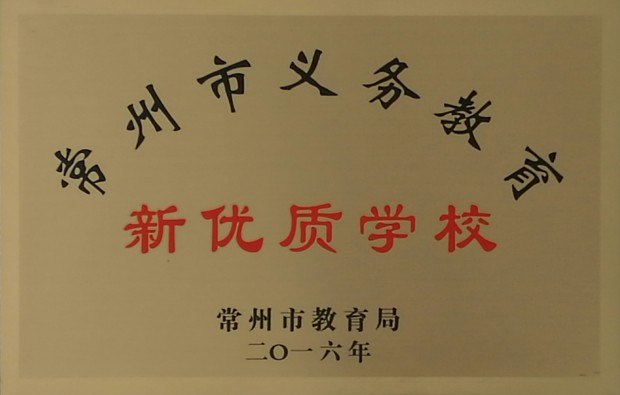 常州市义务教育
新优质学校
常州市教育局
二〇一六年